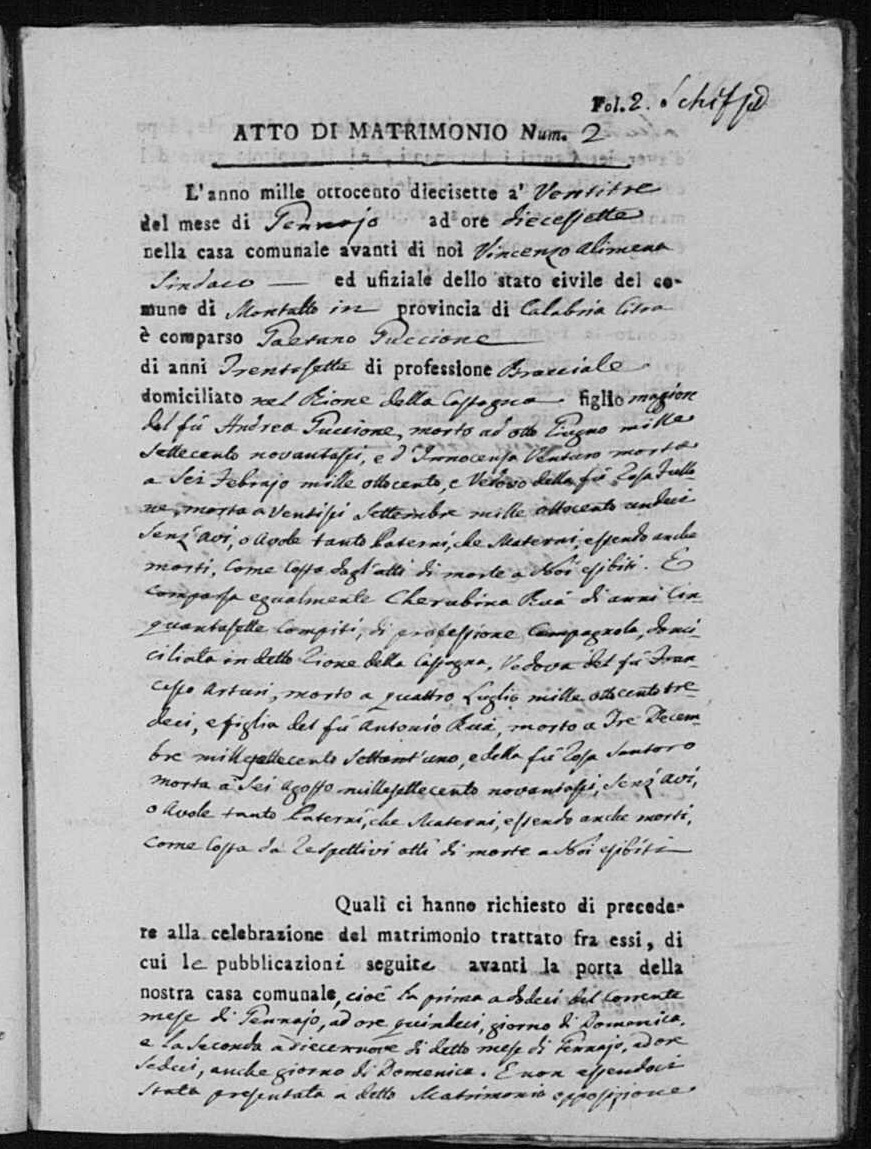 Fol. 2.
ATTO DI MATRIMONIO Num. 2
L'anno mille ottocento diecisette a' Ventitre
del mese di Gennajo ad ore diecessette
nella casa comunale avanti di noi Vincenzo Alimena
Sindaco ed ufiziale dello stato civile del co-
mune di Montalto in provincia di Calabria Citra
è comparso Gaetano Guccione
di anni Trentasette di professione Bracciale
domiciliato nel Rione della Castagna figlio maggiore
del fù Andrea Guccione, morto ad otto Giugno mille
settecento novantassei, e d'Innocenza Venturo morta
a Sei Febrajo mille ottocento, e Vedovo della fù Rosa
ne, morta a Ventisei Settembre mille ottocento undeci
Senz'avi, o Avole tanto Paterni, che Materni, essendo anche
morti, come costa dagl'atti di morte a Noi esibiti. E
comparsa egualmente Cherubina Ruà di anni Cin-
quantasette compiti, di professione Campagnola, domi-
ciliata in detto Rione della Castagna, Vedova del fù Fran-
cesco Arturi, morto a quattro Luglio mille ottocento tre-
deci, e figlia del fù Antonio Ruà, morto a Tre Decem-
bre millesettecento settant'uno, e della fù Rosa Santoro
morta a Sei Agosto millesettecento novantassei, Senz'Avi,
o Avole tanto Paterni, che Materni, essendo anche morti,
come costa da respettivi atti di morte a Noi esibiti
Quali ci hanno richiesto di precede-
re alla celebrazione del matrimonio trattato fra essi, di
cui le pubblicazioni seguite avanti la porta della
nostra casa comunale, cioè la prima a dodeci del corrente
mese di Gennajo, ad ore quindeci, giorno di Domenica,
e la seconda a diecennove di detto mese di Gennajo, ad ore
sedeci, anche giorno di Domenica. E non essendoci
stata presentata a detto Matrimonio opposizione